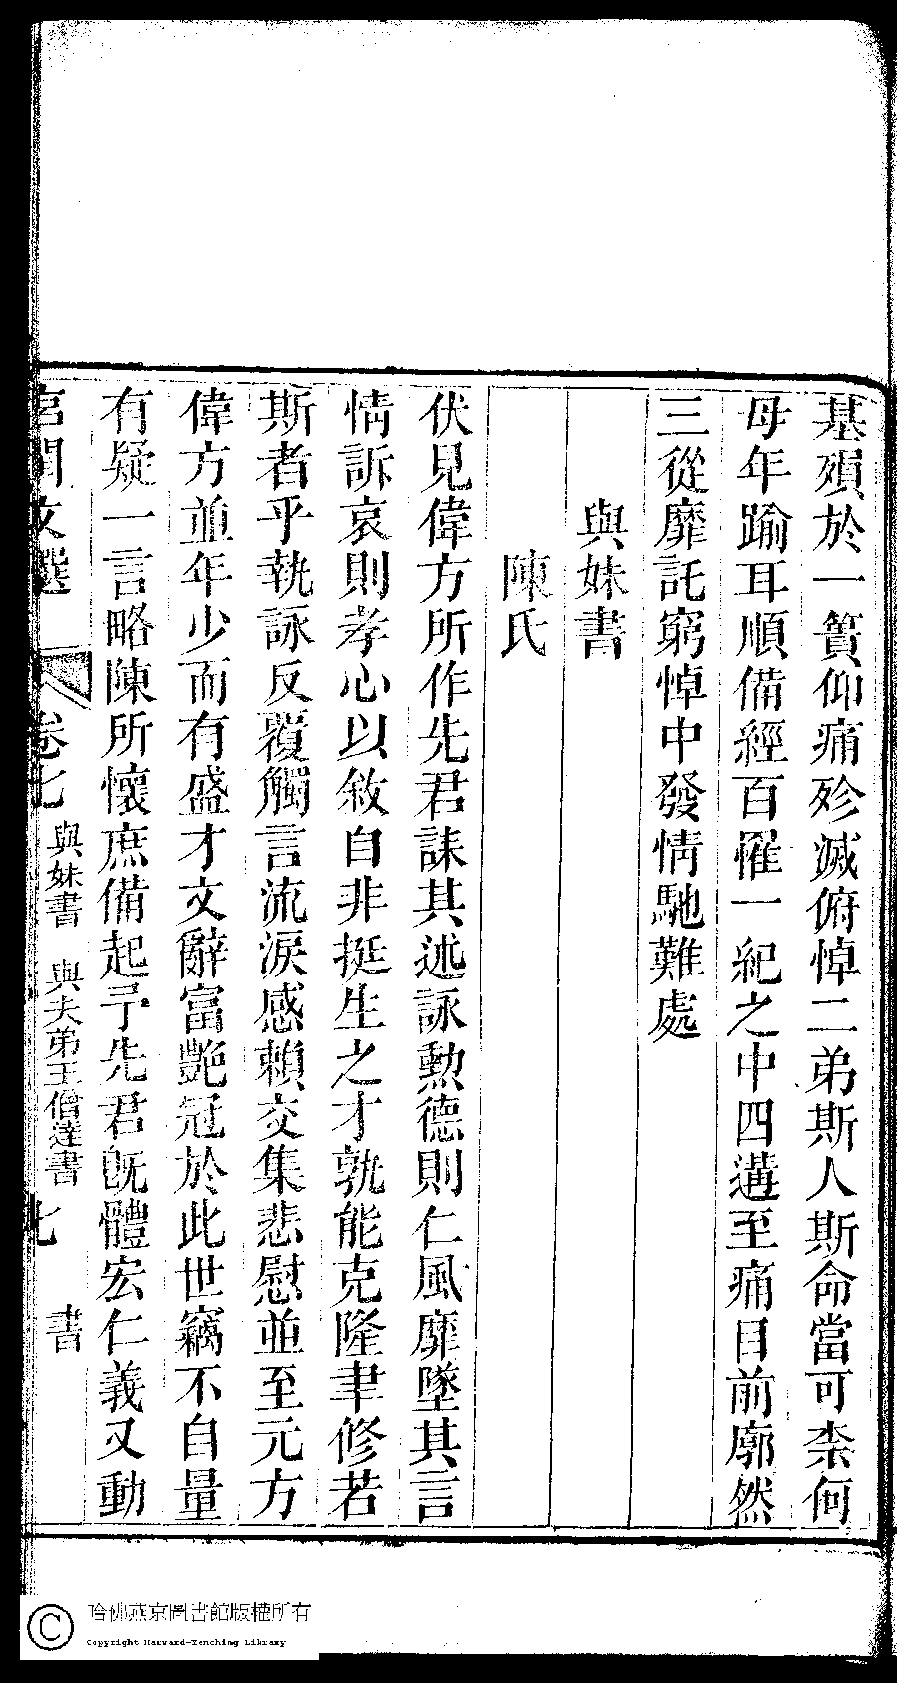 基殞於一簣仰痛殄滅俯悼二弟斯人斯命當可柰何
母年踰耳順備經百罹一紀之中四遘至痛目前廓然
三從靡託窮悼中發情馳難處
與妹書
陳氏
伏見偉方所作先君誄其述詠勲德則仁風靡墜其言
情訴哀則孝心以敘自非挺生之才孰能克隆聿修若
斯者乎執詠反覆觸言流淚感賴交集悲慰並至元方
偉方並年少而有盛才文辭富艶冠於此世竊不自量
有疑一言略陳所懷庶備起予先君旣體宏仁義又動
宮閨文選 卷七 與妹書 與夫弟王僧達書 七 書
哈佛燕京圖書館版權所有
Copyright Harvard-Yenching Library